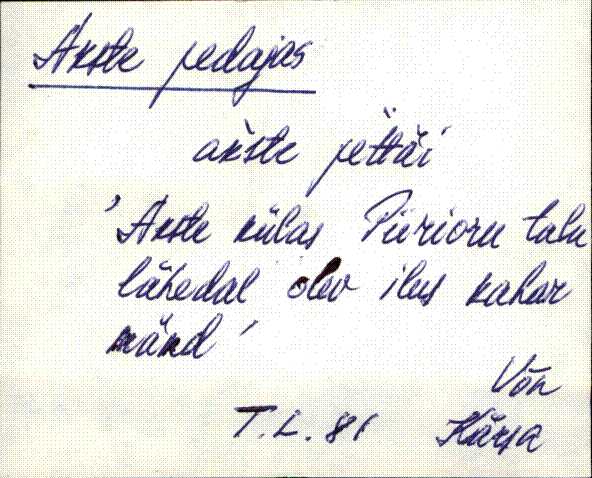 Akste pedajas
akste pettäi
'Akste külas Piirioru talu
lähedal olev ilus kahar
mänd'
Võn
T.L. 81 Kärsa